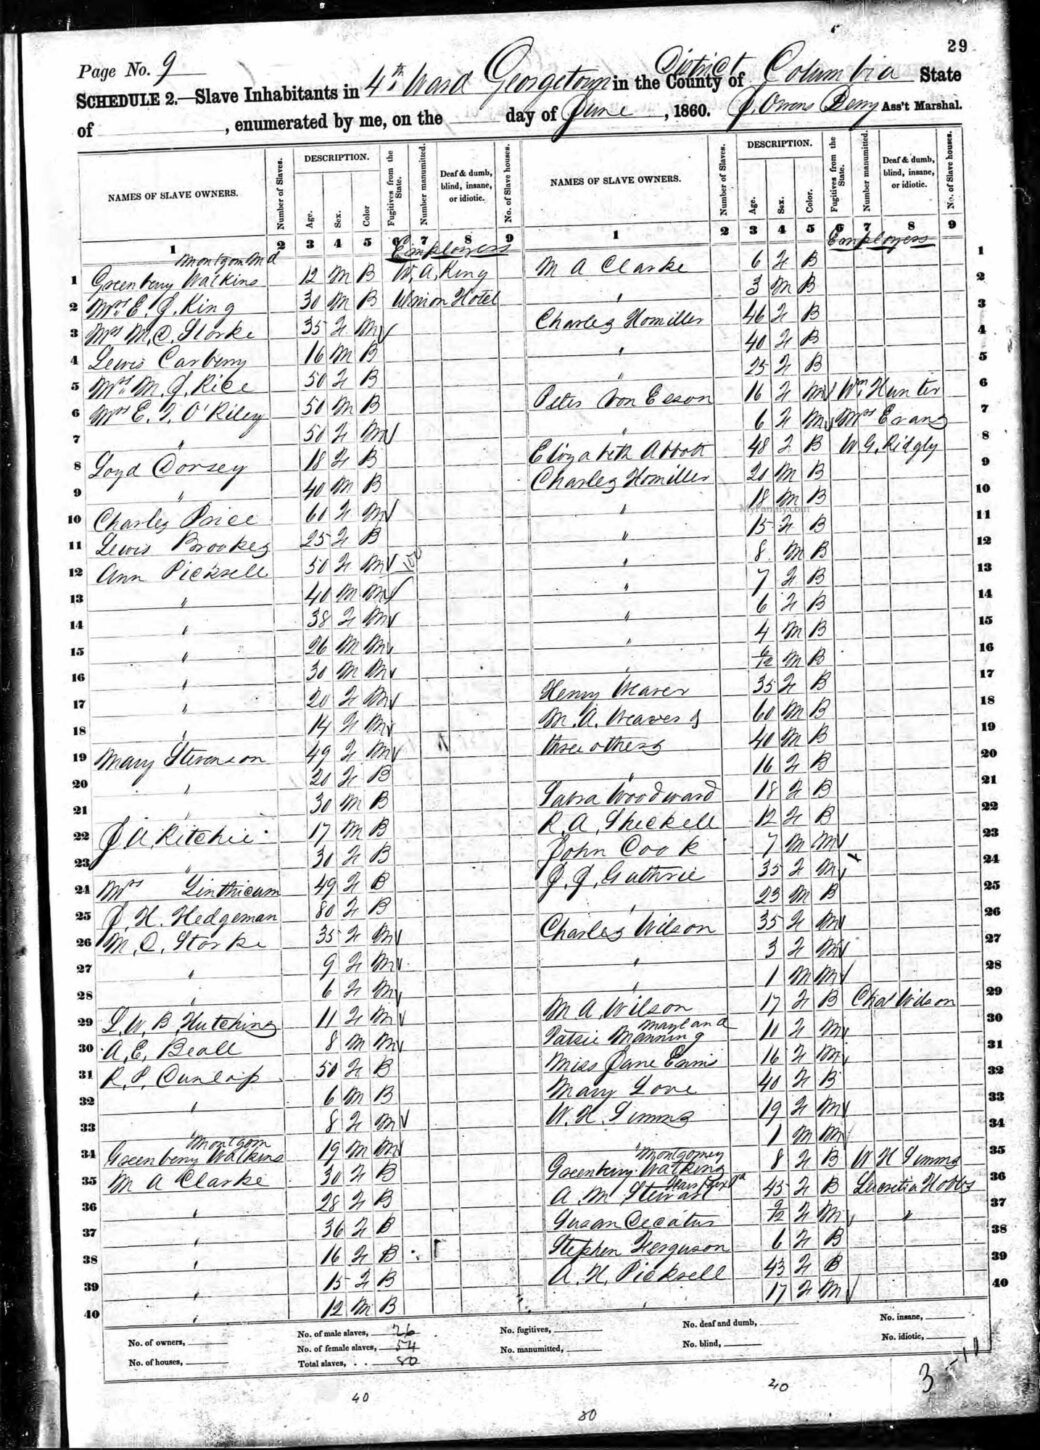 29
Page No. 9
SCHEDULE 2.—Slave Inhabitants in 4th Ward Georgetown in the County of District Columbia State
of , enumerated by me, on the day of June , 1860. J. Owens Berry Ass't Marshal.
NAMES OF SLAVE OWNERS. Number of Slaves. DESCRIPTION. Age. Sex. Color Fugitives from the State. Number manumitted. Deaf & dumb, blind, insane, or idiotic. No. of Slave houses. NAMES OF SLAVE OWNERS. Number of Slaves. DESCRIPTION. Age. Sex. Color. Fugitives from the State. Number manumitted. Deaf & dumb, blind, insane, or idiotic. No. of Slave houses.
1 2 3 4 5 6 7 8 9 1 2 3 4 5 6 7 8 9
Employers Employers
Montgom Md
1 Greenberry Watkins 12 M B W. A. King M A Clarke 6 F B 1
2 Mrs E. J. King 30 M B Union Hotel " 3 M B 2
3 Mrs M. C. Storke 35 F M Charles Homiller 46 F B 3
4 Lewis Carberry 16 M B " 40 F B 4
5 Mrs M. J. Rice 50 F B " 25 F B 5
6 Mrs E. J. O'Riley 50 M B Peter Von Esson 16 F M Wm Hunter 6
7 " 50 F M " 6 F M Mrs Evans 7
8 Loyd Dorsey 18 F B Elizabeth Abbott 48 F B W G. Ridgly 8
9 " 40 M B Charles Homiller 20 M B 9
10 Charles Price 60 F M " 18 M B 10
MyFamily.com
11 Lewis Brookes 25 F B " 15 F B 11
12 Ann Picksell 50 F M " 8 M B 12
13 " 40 M M " 7 F B 13
14 " 38 F M " 6 F B 14
15 " 26 M M " 4 M B 15
16 " 30 M M " 6/12 M B 16
17 " 20 F M Henry Weaver 35 F B 17
18 " 14 F M M. A. Weaver & 60 M B 18
19 Mary Stevenson 49 F M three others 40 M B 19
20 " 20 F B " 16 F B 20
21 " 30 M B Woodward 18 F B 21
22 J A Ritchie 17 M B R. A. Shekell 12 F B 22
23 " 30 F B John Cook 7 M M 23
24 Mrs Linthicum 49 F B J. J. Guthrie 35 F M 24
25 J. H. Hedgeman 80 F B " 23 M B 25
26 M. C. Storke 35 F M Charles Wilson 35 F M 26
27 " 9 F M " 3 F M 27
28 " 6 F M " 1 M M 28
29 L. W. B. Hutchins 11 F M M A Wilson 17 F B Chas Wilson 29
Maryland
30 A. E. Beall 8 M M Manning 11 F M 30
31 R. P. Dunlop 50 F B Miss Jane Ennis 16 F M 31
32 " 6 M B Mary Love 40 F B 32
33 " 8 F M W. H. Simms 19 F M 33
34 Greenberry Watkins 19 M M " 1 M M 34
Montgom Montgomery
35 M A Clarke 30 F B Greenberry Watkins 8 F B W H Simms 35
36 " 28 F B A. M. Stewart 45 F B Lucretia Hobbs 36
37 " 36 F B Susan Decatur 9/12 F M " 37
38 " 16 F B Stephen Ferguson 6 F B 38
39 " 15 F B A. H. Picksell 43 F B 39
40 " 12 M B " 17 F M 40
No. of owners, No. of male slaves, 26 No. fugitives, No. deaf and dumb, No. insane,
No. of houses, No. of female slaves, 54 No. manumitted, No. blind, No. idiotic,
Total slaves, . . 80
40 80 40